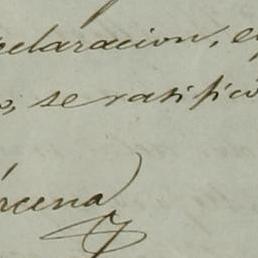 eclaracion, e
o, se ratificó
rcena